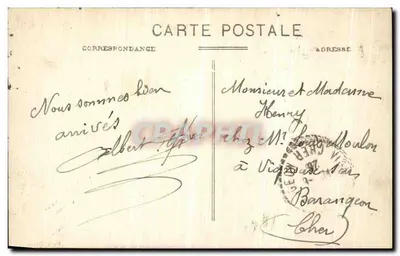 CARTE POSTALE
CORRESPONDANCE
ADRESSE
Nous sommes bien
arrivés
Albert
Monsieur et Madame
Henry
chez Mr Moulon
à sur
Barangeon
Cher
CHER